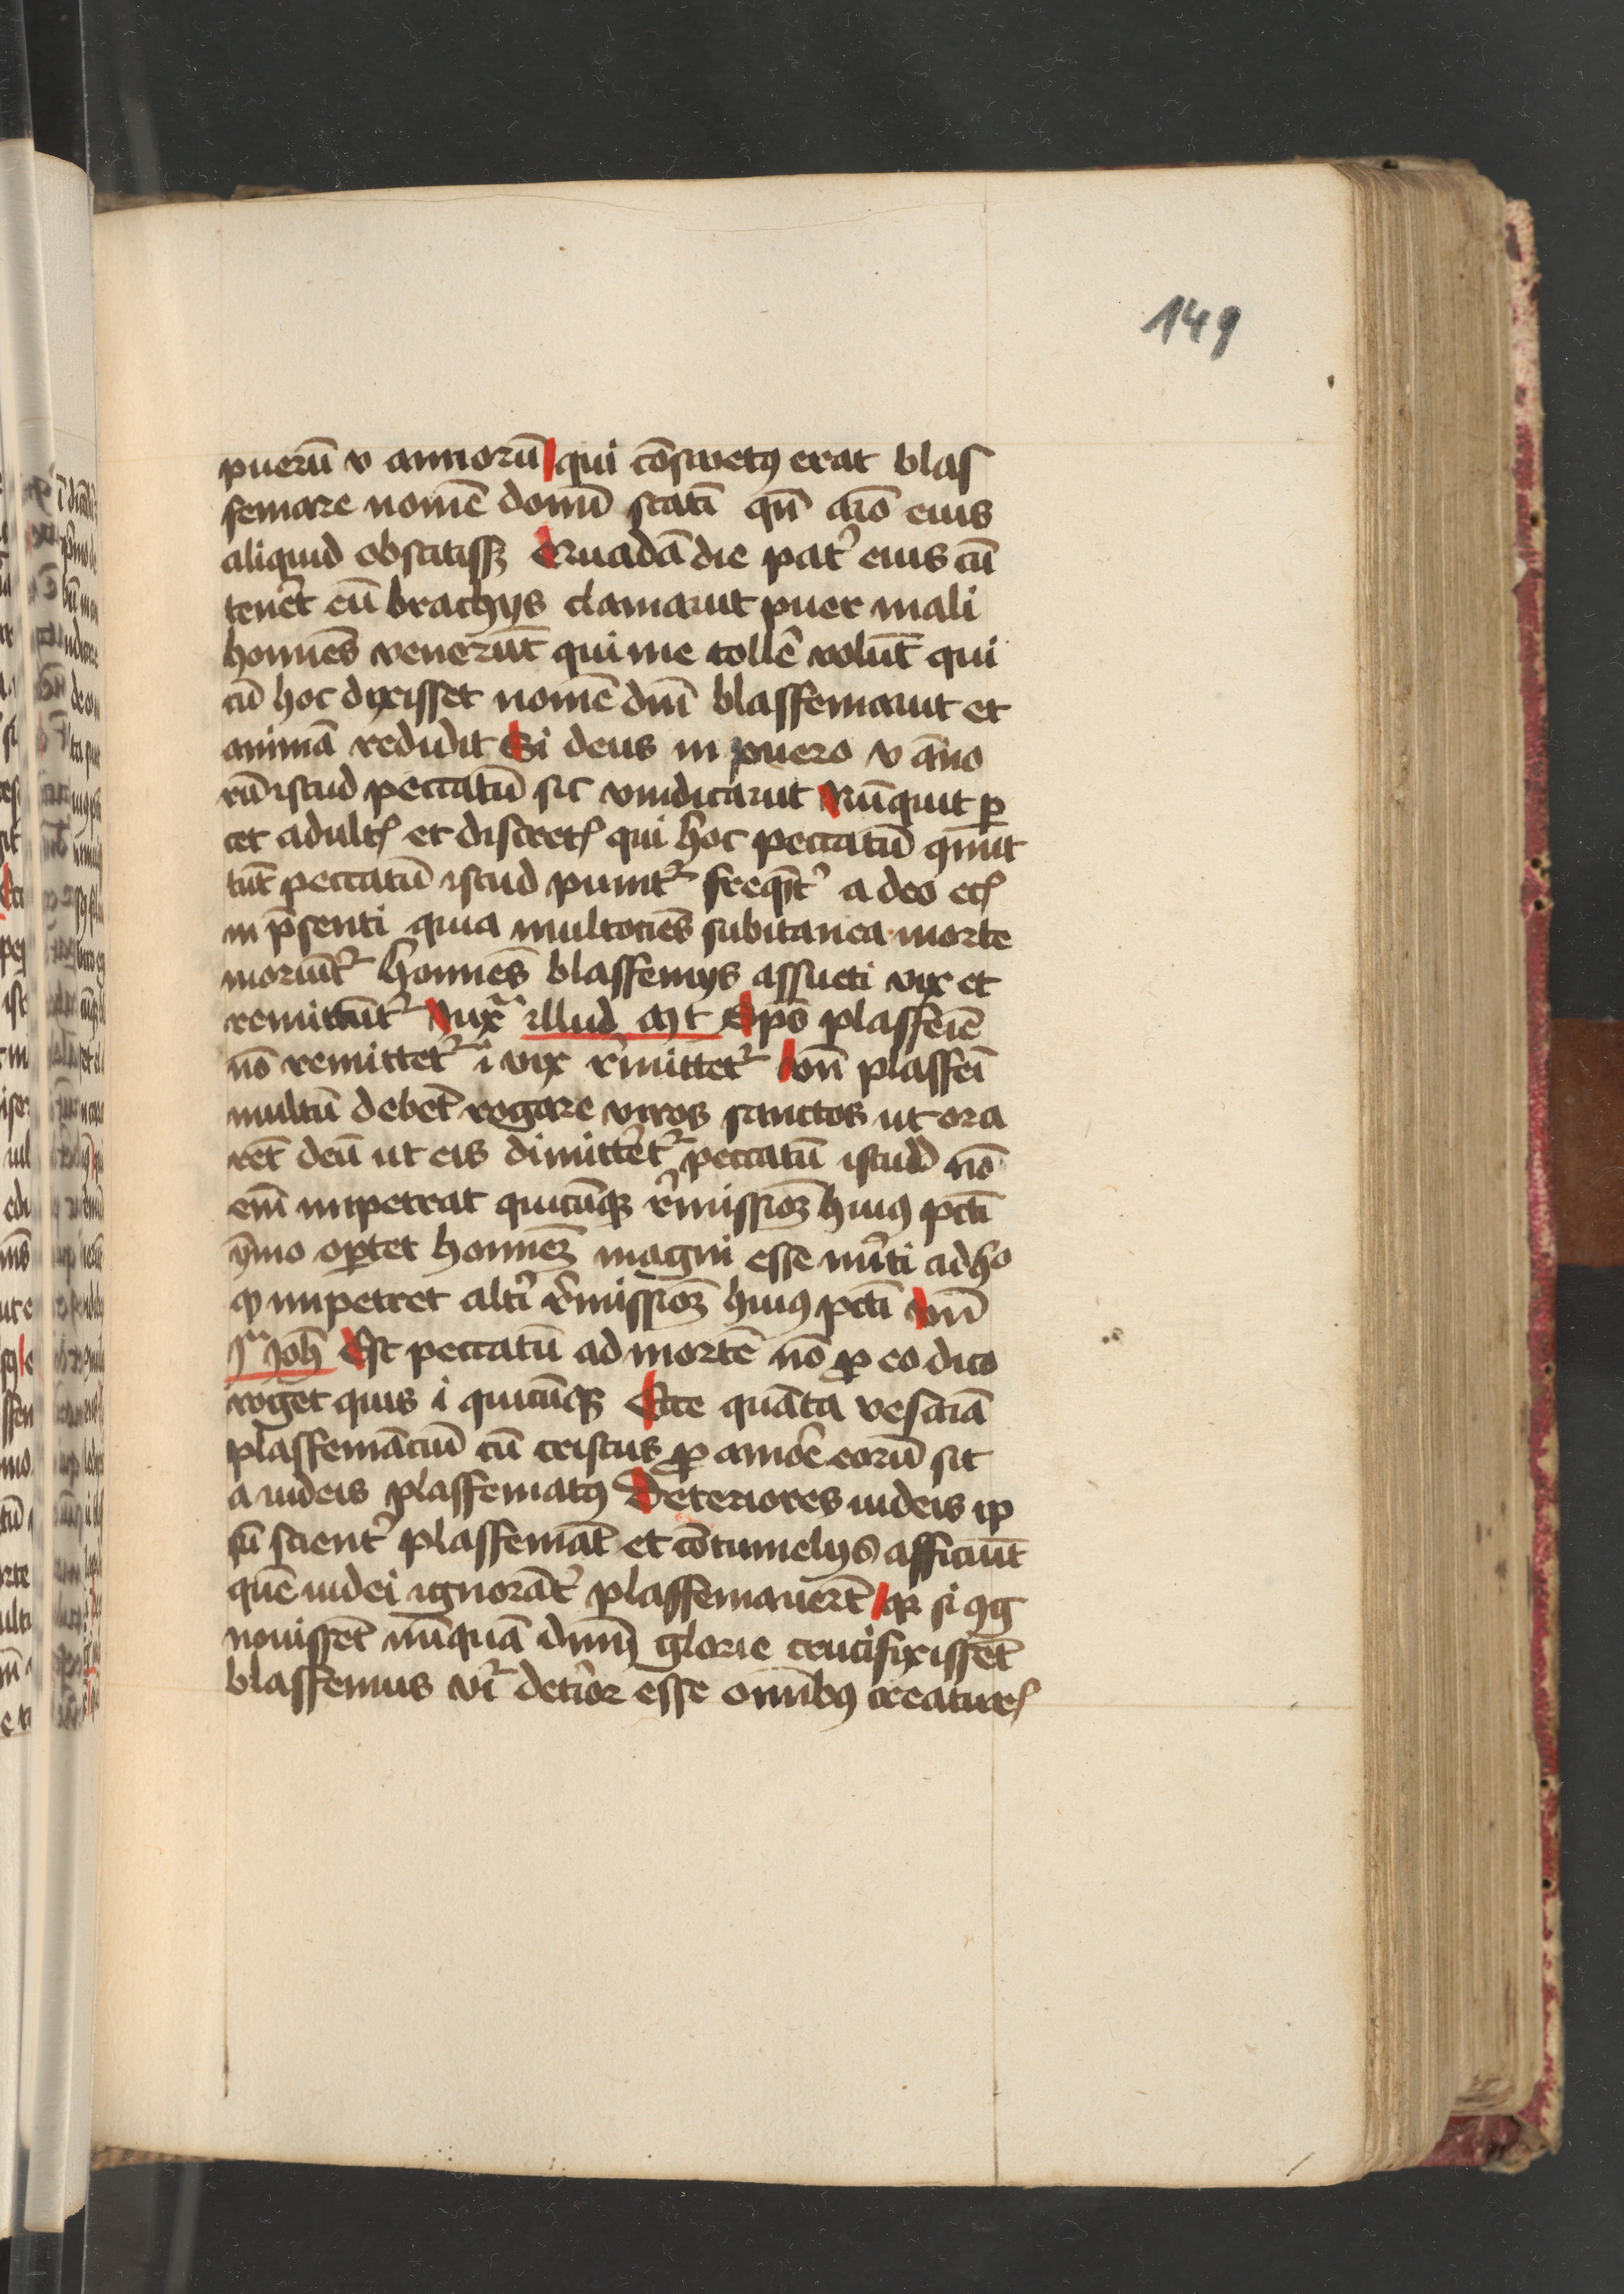 149
puerū v annorū qui cōswetꝰ erat blas
femare nomē domī statī qn̄ aīo eius
aliquid obstitissꝫ Quadā die pat᷑ eius cū
tenēt eū brachijs clamauit puer mali
homīes venerūt qui me tollē volūt qui
cū hoc dixisset nomē dnī blasfemauit et
animā redidit Si deus in puero v āno
rū istud peccatū sic vindicauit Nūquit ꝑ
cet adultꝭ et discretꝭ qui hoc peccatū ꝯmit
tūt peccatū istud punit᷑ freqn̄t᷑ a deo ecꝭ
in p̄senti quia multociēs subitanea morte
moriūt᷑ homīes blasfemijs assueti vix et
remittūt᷑ Iuxᵃ illud Mt Sps̄ plasfeīe
nō remittet᷑ i vix r̄mittet᷑ vn̄ plasfeī
multū debēt rogare viros sanctos ut ora
rēt deū ut eis dimittēt᷑ peccatū istud nō
enī impetrat quicūqꝫ r̄missioꝫ huiꝰ pctī
ȳmo oꝑtet homineꝫ magni esse mīti ad hᵒ
ꝙ impetret altī r̄missioꝫ huiꝰ pctī vn̄
jᵃ Joh̄ Est peccatū ad mortē nō ꝓ eo dico
roget quis i quicūqꝫ Ecce quāta vesaniā
plasfemāciū cū cristus ꝓ amōe eorū sit
a iudeis plasfematꝰ Deteriores iudeis ip
sū scient᷑ plasfemāt et cōtumelijs afficiūt
quē iudei ignorāt᷑ plasfemauerūt qꝛ si ꝯg
nouissēt nūquā dnm̄ glorie crucifixissēt
blasfemus vr̄ detīor esse omībꝰ creaturꝭ